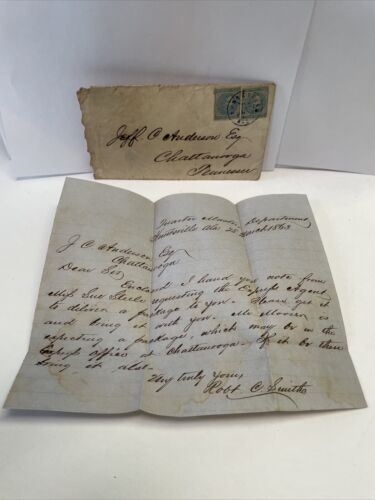 Jeff C Anderson Esq
Chattanooga
Tennessee
Quarter Master Department
Huntsville Ala 25 March 1863
J. C. Anderson Esq
Chattanooga
Dear Sir
Enclosed I hand you note from
Miss Sue Steele requesting the Express Agent
to deliver a package to you. Please get it
and bring it with you. Mr. is
expecting a package, which may be in the
Express office at Chattanooga. If it be there
bring it also.
Very truly yours
Robt. C. Smith